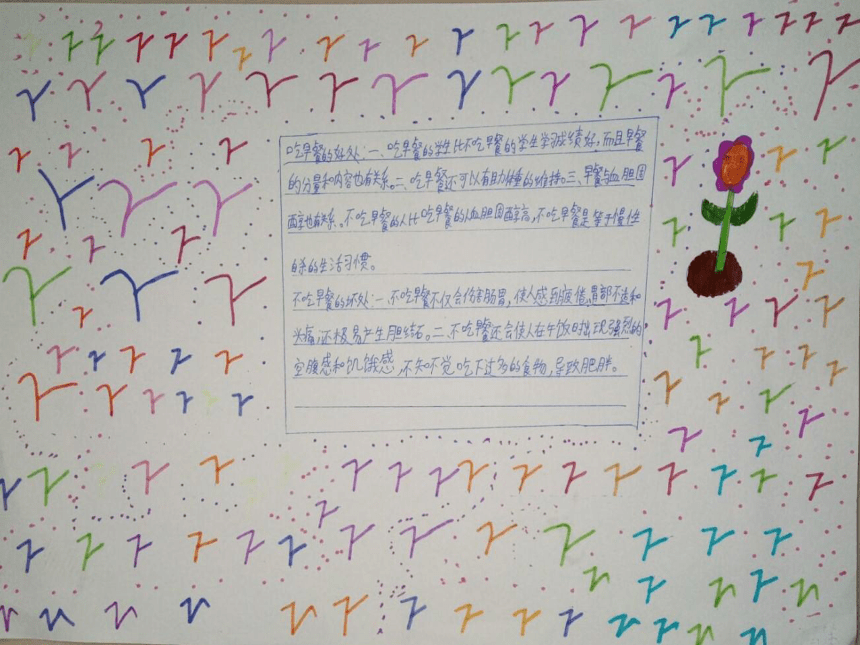 吃早餐的好处:一、吃早餐的学生比不吃早餐的学生学习成绩好,而且早餐
的分量和内容也有关系。二、吃早餐还可以有助体重的维持。三、早餐与血胆固
醇也有关系。不吃早餐的人比吃早餐的人血胆固醇高,不吃早餐是等于慢性
自杀的生活习惯。
不吃早餐的坏处:一、不吃早餐不仅会伤害肠胃,使人感到疲倦、胃部不适和
头痛,还极易产生胆结石。二、不吃早餐还会使人在午饭时出现强烈的
空腹感和饥饿感,不知不觉吃下过多的食物,导致肥胖。